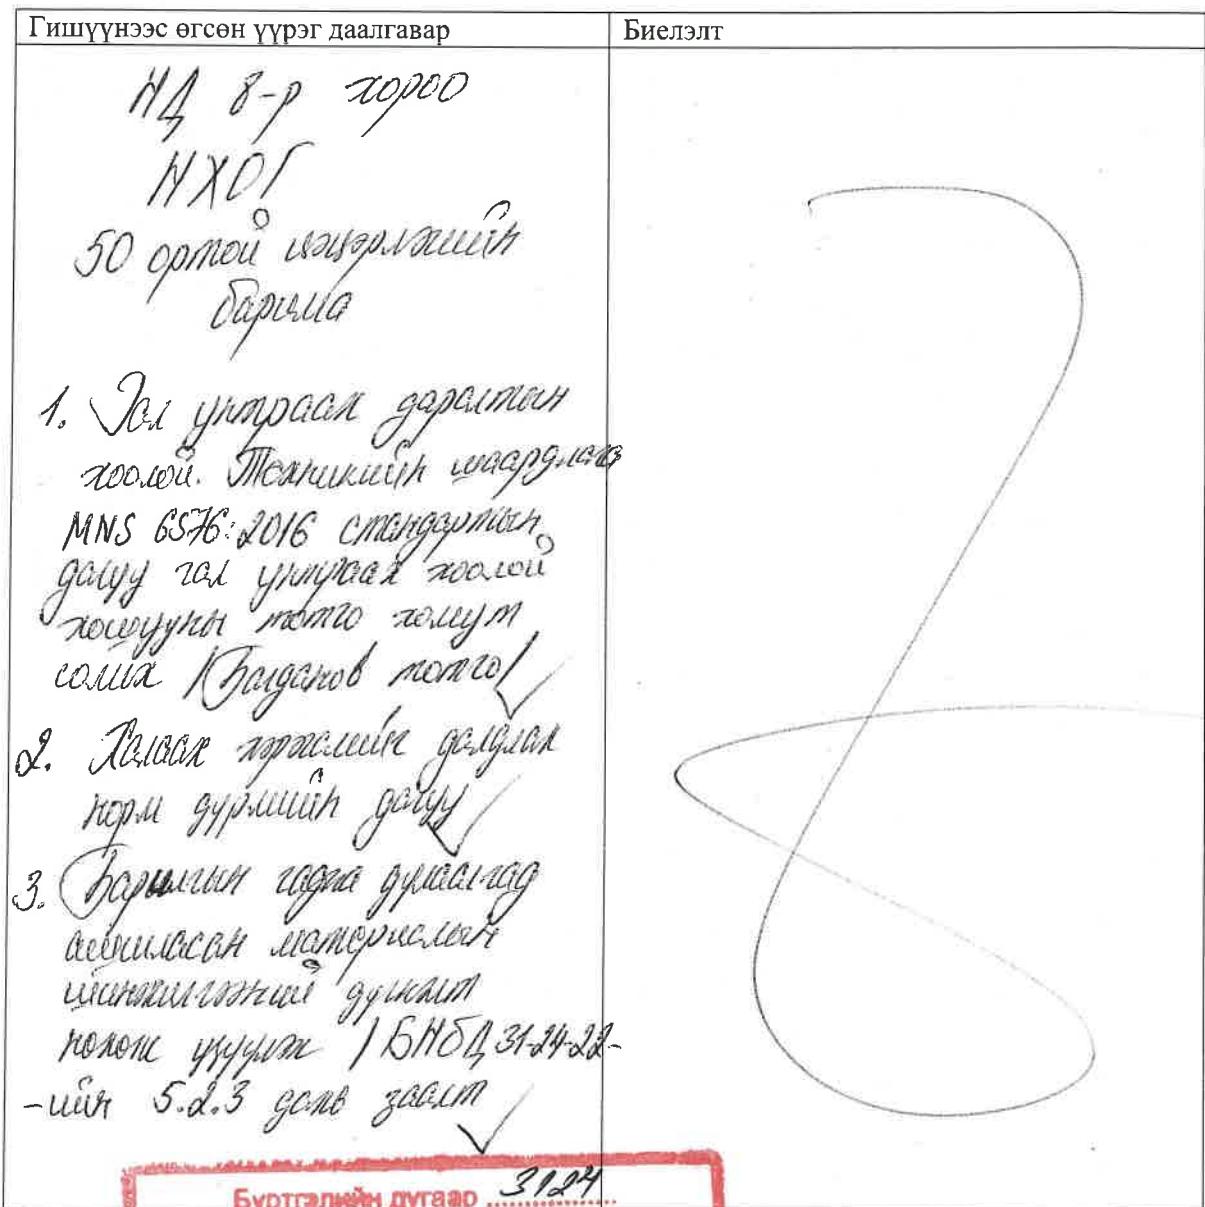 Гишүүнээс өгсөн үүрэг даалгавар
Биелэлт
НД 8-р хороо
НХОГ
50 ортой цэцэрлэгийн
барилга
1. Гал унтраах даралтын
хоолой. Техникийн шаардлага
MNS 6576:2016 стандартын
дагуу гал унтраах хоолой
хошууны толгой хомут
солих /Богданов толгой/
2. Халаах хэрэгслийг далдлах
норм дүрмийн дагуу
3. Барилгын гадна дулаалгад
ашигласан материалын
шинжилгээний дүгнэлт
нөхөж үзүүлж /БНбД 31-24-22-
-ийн 5.2.3 дахь заалт
Бүртгэлийн дугаар 3124